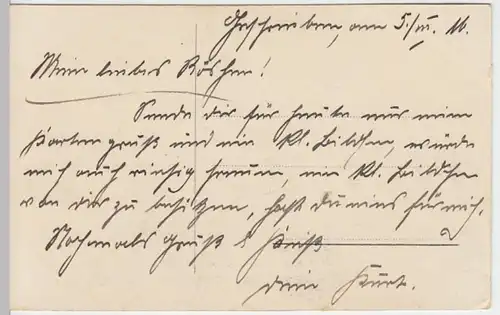 Geschrieben, am 5./III. 16.
Mein liebes Röschen!
Sende dir für heute nur mein
Kartengruß und ein kl. Bildchen, würde
mich auch riesig freuen, ein kl. Bildchen
von dir zu besitzen, hast du eins für mich.
Nochmals Gruß & Kuß
dein Kurt.